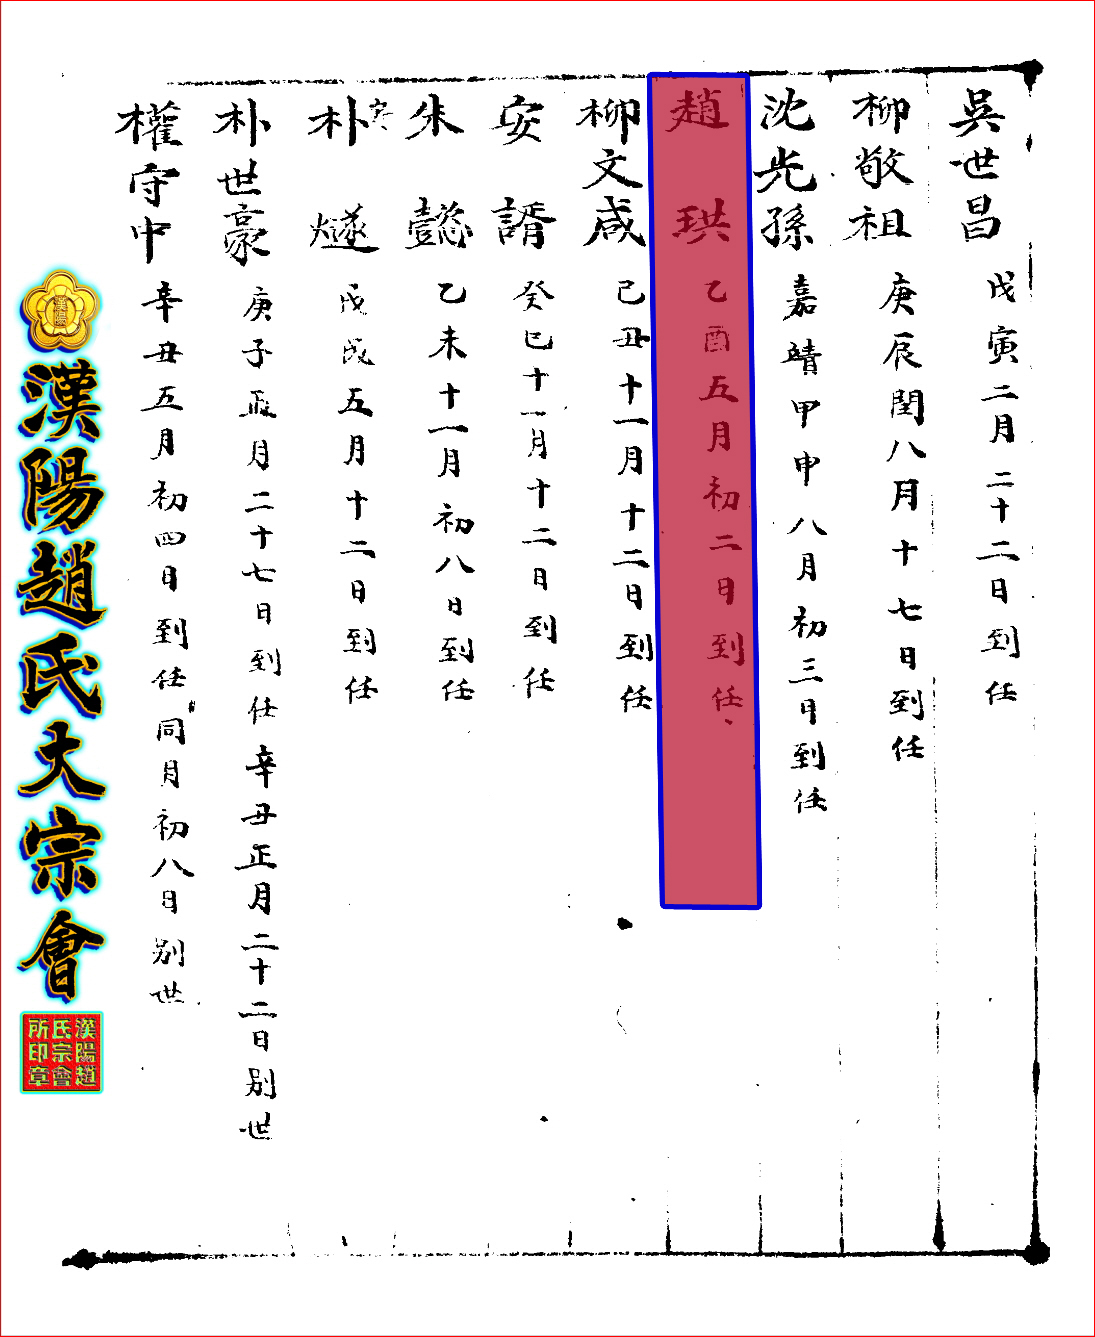 吳世昌 戊寅二月二十二日到任
柳敬祖 庚辰閏八月十七日到任
沈光孫 嘉靖甲申八月初三日到任
趙珙 乙酉五月初二日到任
柳文咸 己丑十一月十二日到任
安諝 癸巳十一月十二日到任
朱懿 乙未十一月初八日到任
朴燧 戊戌五月十二日到任
朴世豪 庚子正月二十七日到任辛丑正月二十二日別世
權守中 辛丑五月初四日到任同月初八日別世
漢陽
漢陽趙氏大宗會
漢陽趙
氏宗會
所印章